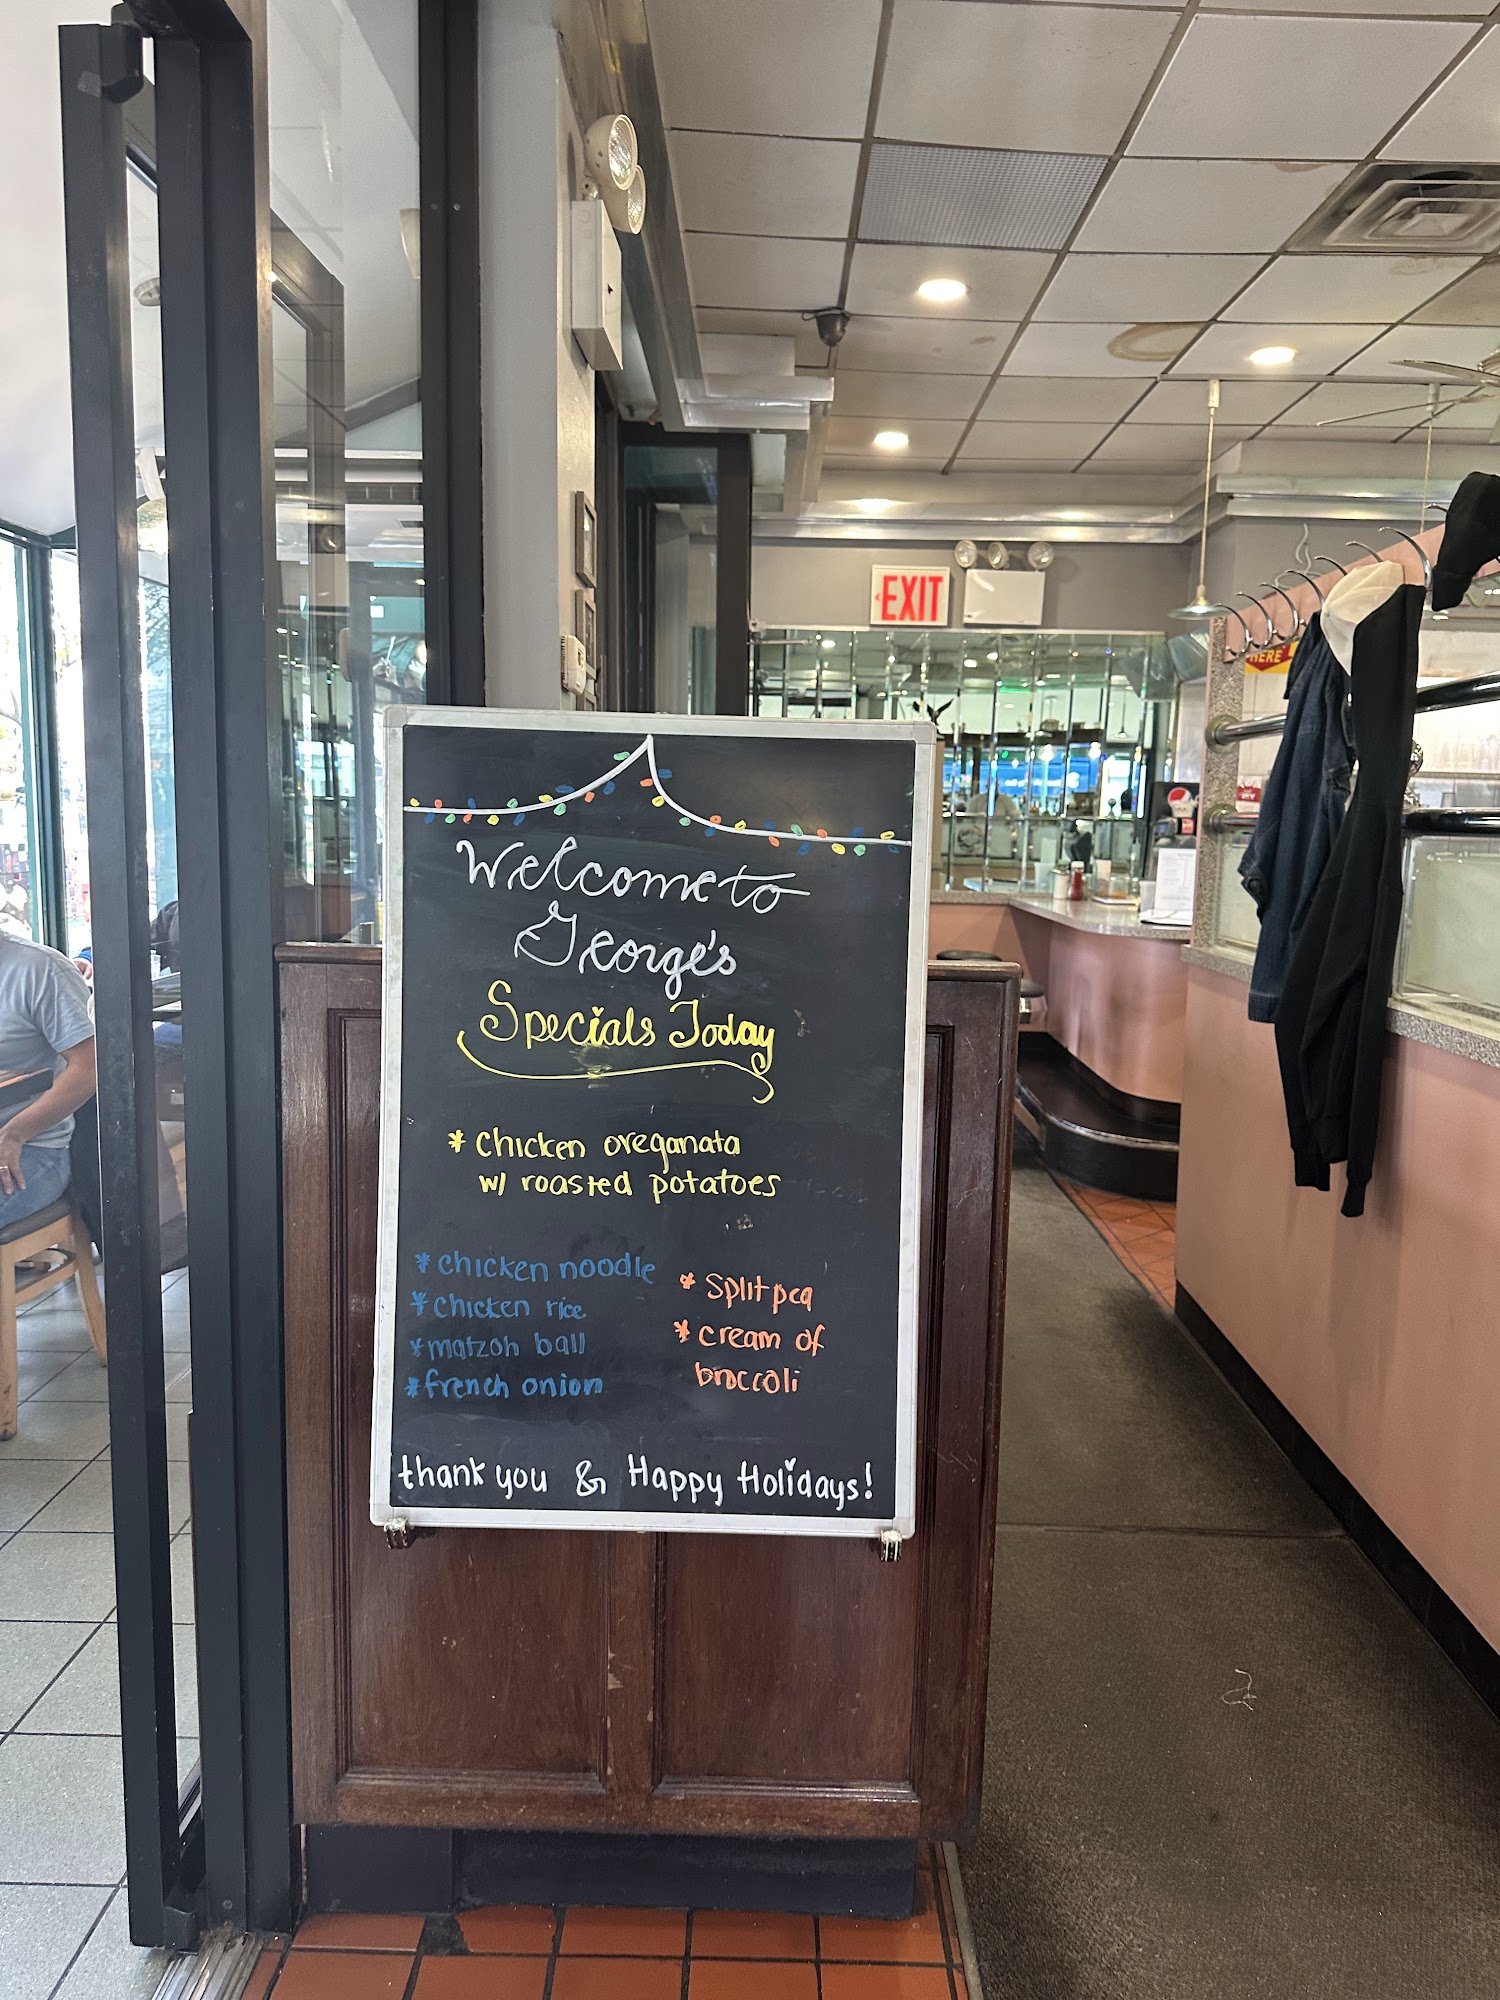 EXIT
HERE
Welcome to
George's
Specials Today
* chicken oreganata
w/ roasted potatoes
* chicken noodle
* chicken rice
* matzoh ball
* french onion
* split pea
* cream of
broccoli
thank you & Happy Holidays!